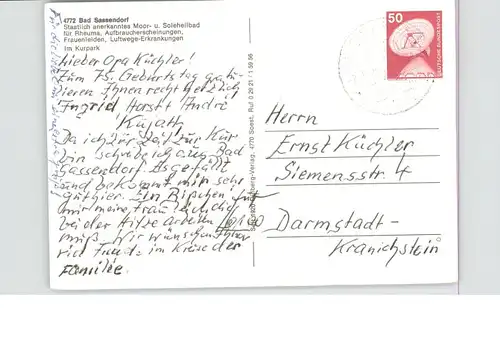 4772 Bad Sassendorf
Staatlich anerkanntes Moor- u. Soleheilbad
für Rheuma, Aufbrauchserscheinungen,
Frauenleiden, Luftwege-Erkrankungen
Im Kurpark
Lieber Opa Küchler!
Zum 75. Geburtstag gratu-
lieren Ihnen recht herzlich
Ingrid Horst André
Kujath
Da ich zur Zeit zur Kur
bin schreibe ich aus Bad
Sassendorf. Es gefällt
und bekommt mir sehr
gut hier. Ein Bißchen tut
mir meine Frau leid die
bei der Hitze arbeiten
muß. Wir wünschen Ihnen
viel Freude im Kreise der
Familie.
Verlag, 4770 Soest, Ruf 0 29 21 / 1 59 56
50
DEUTSCHE BUNDESPOST
Herrn
Ernst Küchler
Siemensstr. 4
Darmstadt-
Kranichstein